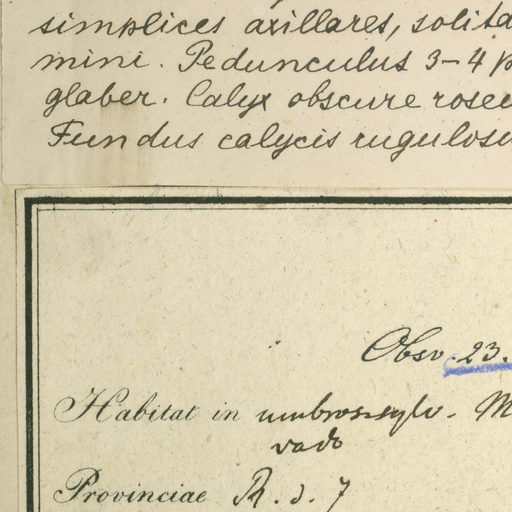 simplices axillares, solita
mini. Pedunculus 3-4 p
glaber. Calyx obscure roseu
Fundus calycis rugulosu
Obsv. 23.
Habitat in umbros. sylv. M
vado
Provinciae R. d. J